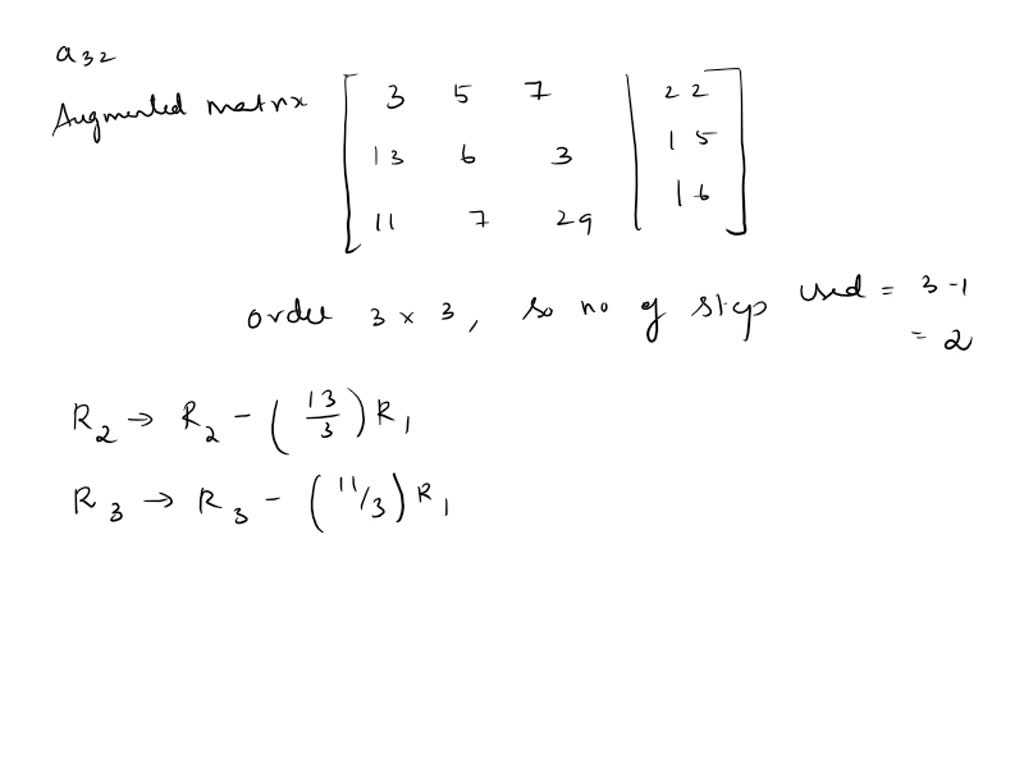 a32
Augmented matrix [ 3 5 7 | 22 ]
13 6 3 | 15
11 7 29 | 16
order 3 × 3, so no of step used = 3-1
= 2
R2 → R2 - (13/3) R1
R3 → R3 - (11/3) R1